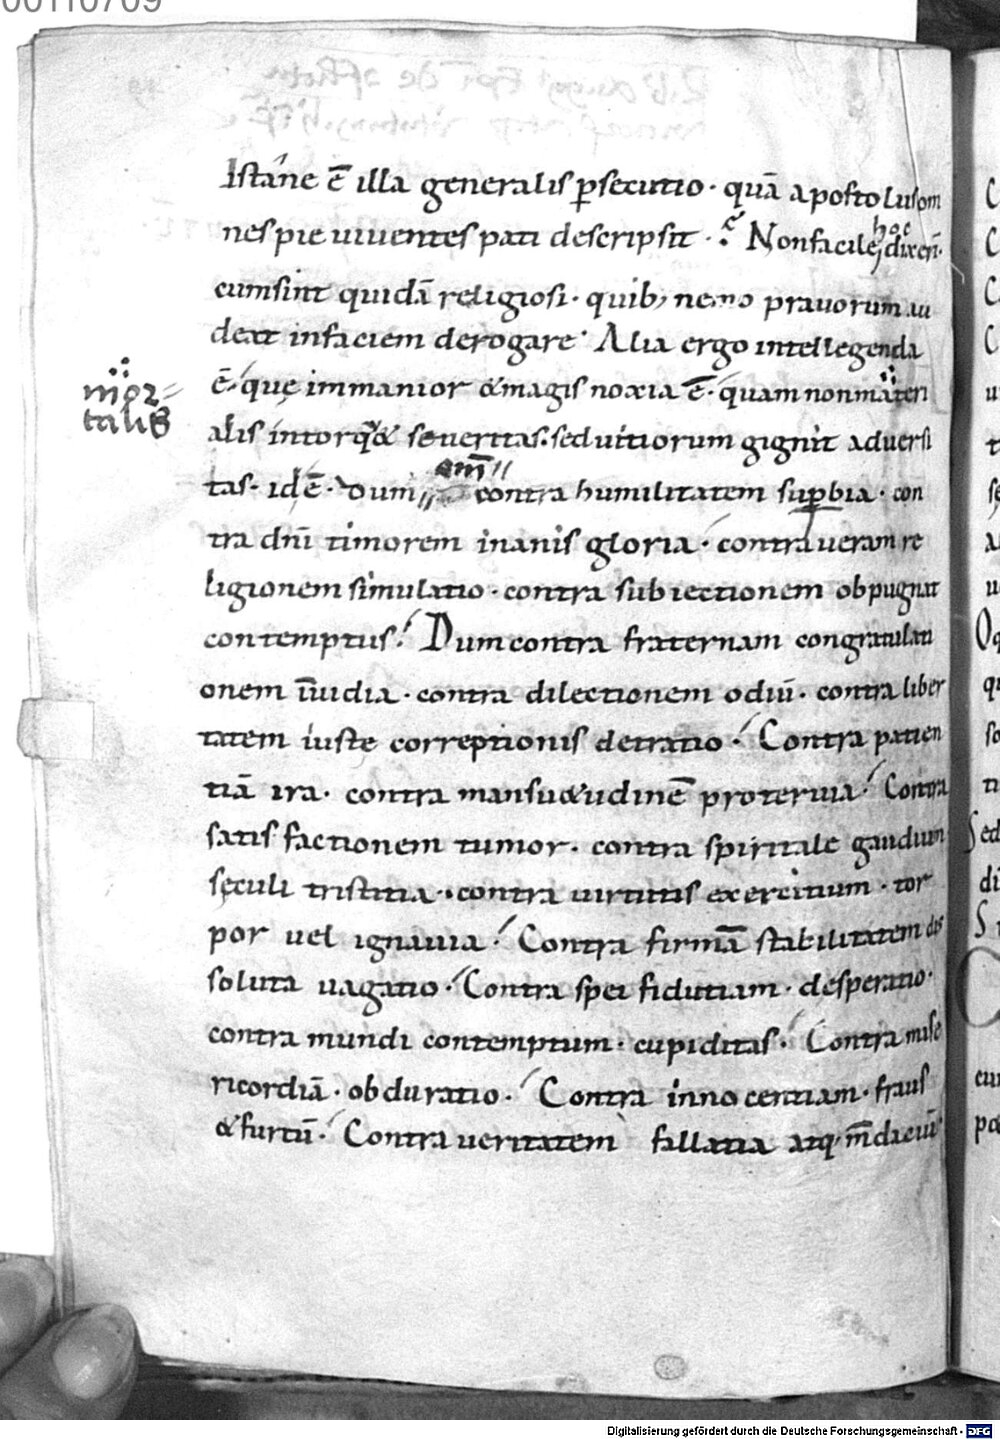 00110709
Istáne ē illa generalis ꝑsecutio · quā apostolus om
nes pie uiuentes pati descripsit · Non facile hoc dixeri·
cum sint quidā religiosi · quib; nemo prauorum au
deat in faciem derogare · Alia ergo intellegenda
ē · quę immanior & magis noxia ē · quam non materi
mor
talis
alis intorq& seueritas · sed uitiorum gignit aduersi
tas · id ē · Dum contra humilitatem suꝑbia · con
tra dn̄i timorem inanis gloria · contra ueram re
ligionem simulatio · contra subiectionem obpugnat
contemptus · Dum contra fraternam congratulati
onem īuidia · contra dilectionem odiū · contra liber
tatem iuste correptionis detratio · Contra patien
tiā ira · contra mansu&udinē proteruia · Contra
satisfactionem tumor · contra spiritale gaudium
sęculi tristitia · contra uirtutis exercitium · tor
por uel ignauia · Contra firmā stabilitatem dis
soluta uagatio · Contra spei fidutiam · desperatio ·
contra mundi contemptum · cupiditas · Contra mise
ricordiā · obduratio · Contra innocentiam · fraus
& furtū · Contra ueritatem fallatia atq; m̄daciū
Digitalisierung gefördert durch die Deutsche Forschungsgemeinschaft - DFG